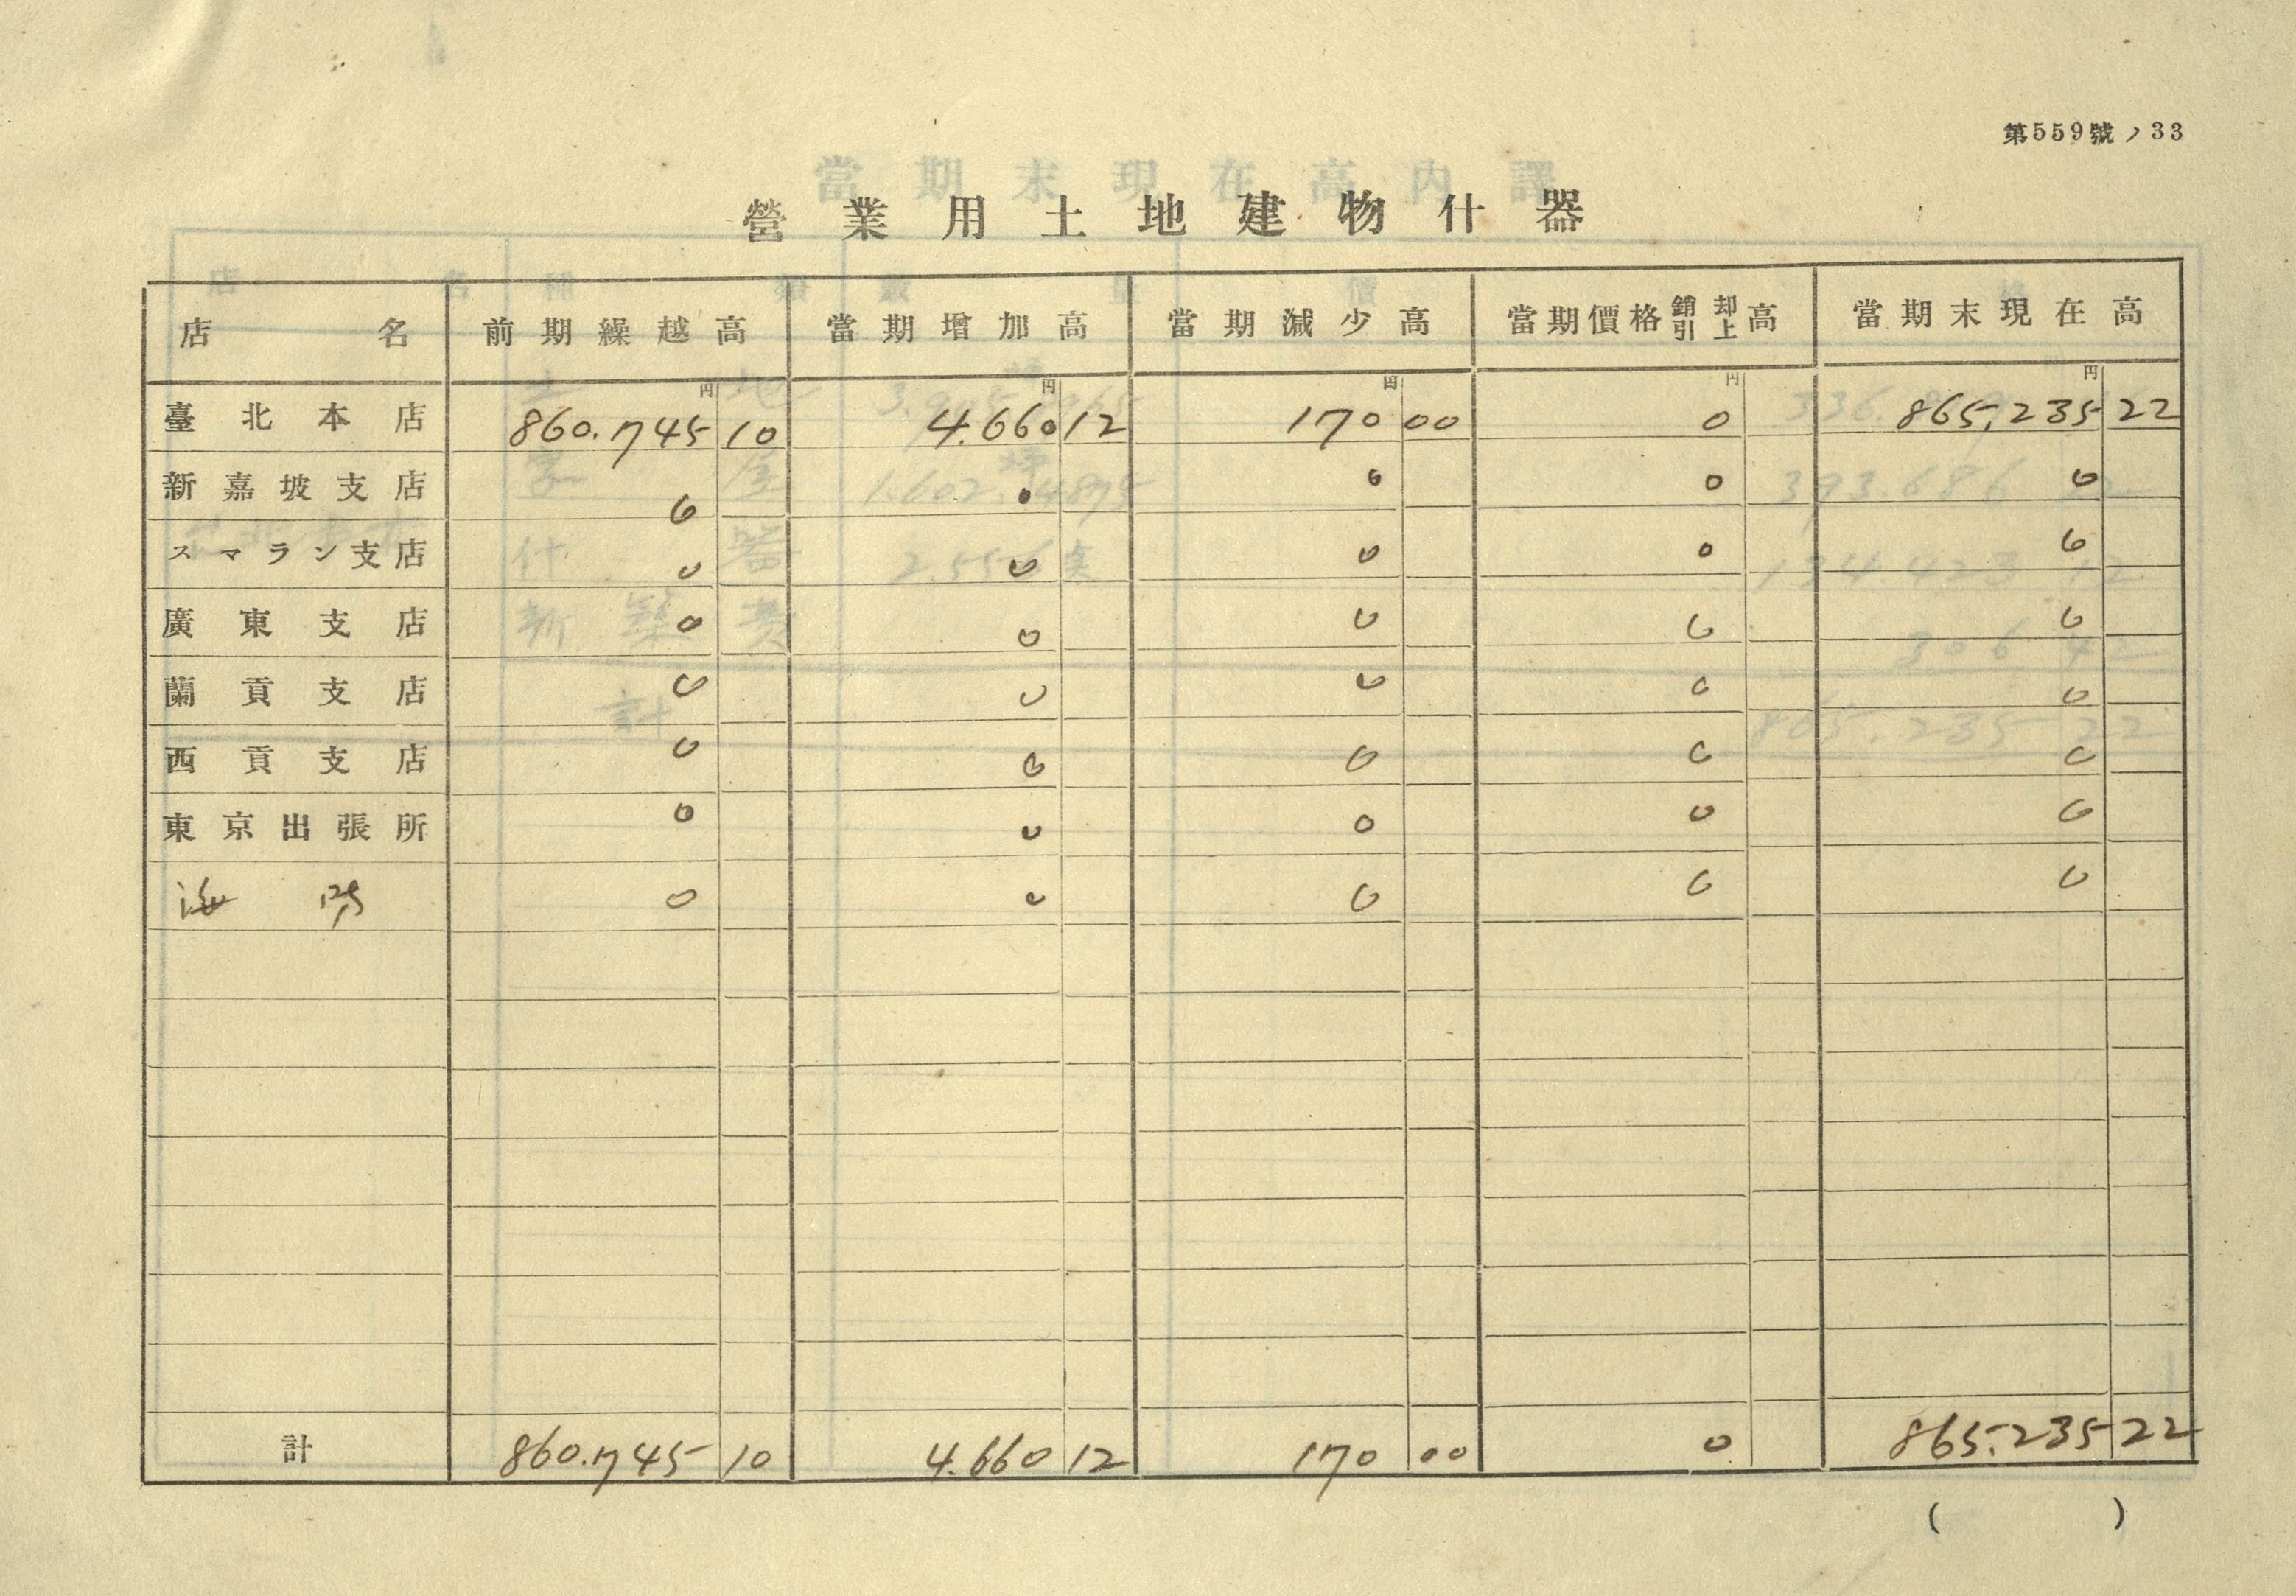 第559號ノ33
營業用土地建物什器
店名 前期繰越高 當期增加高 當期減少高 當期價格銷却引上高 當期末現在高
円 円 円 円 円
臺北本店 860.745 10 4.660 12 170 00 0 865.235 22
新嘉坡支店 0 0 0 0 0
スマラン支店 0 0 0 0 0
廣東支店 0 0 0 0 0
蘭貢支店 0 0 0 0 0
西貢支店 0 0 0 0 0
東京出張所 0 0 0 0 0
海防 0 0 0 0 0
計 860.745 10 4.660 12 170 00 0 865.235 22
( )